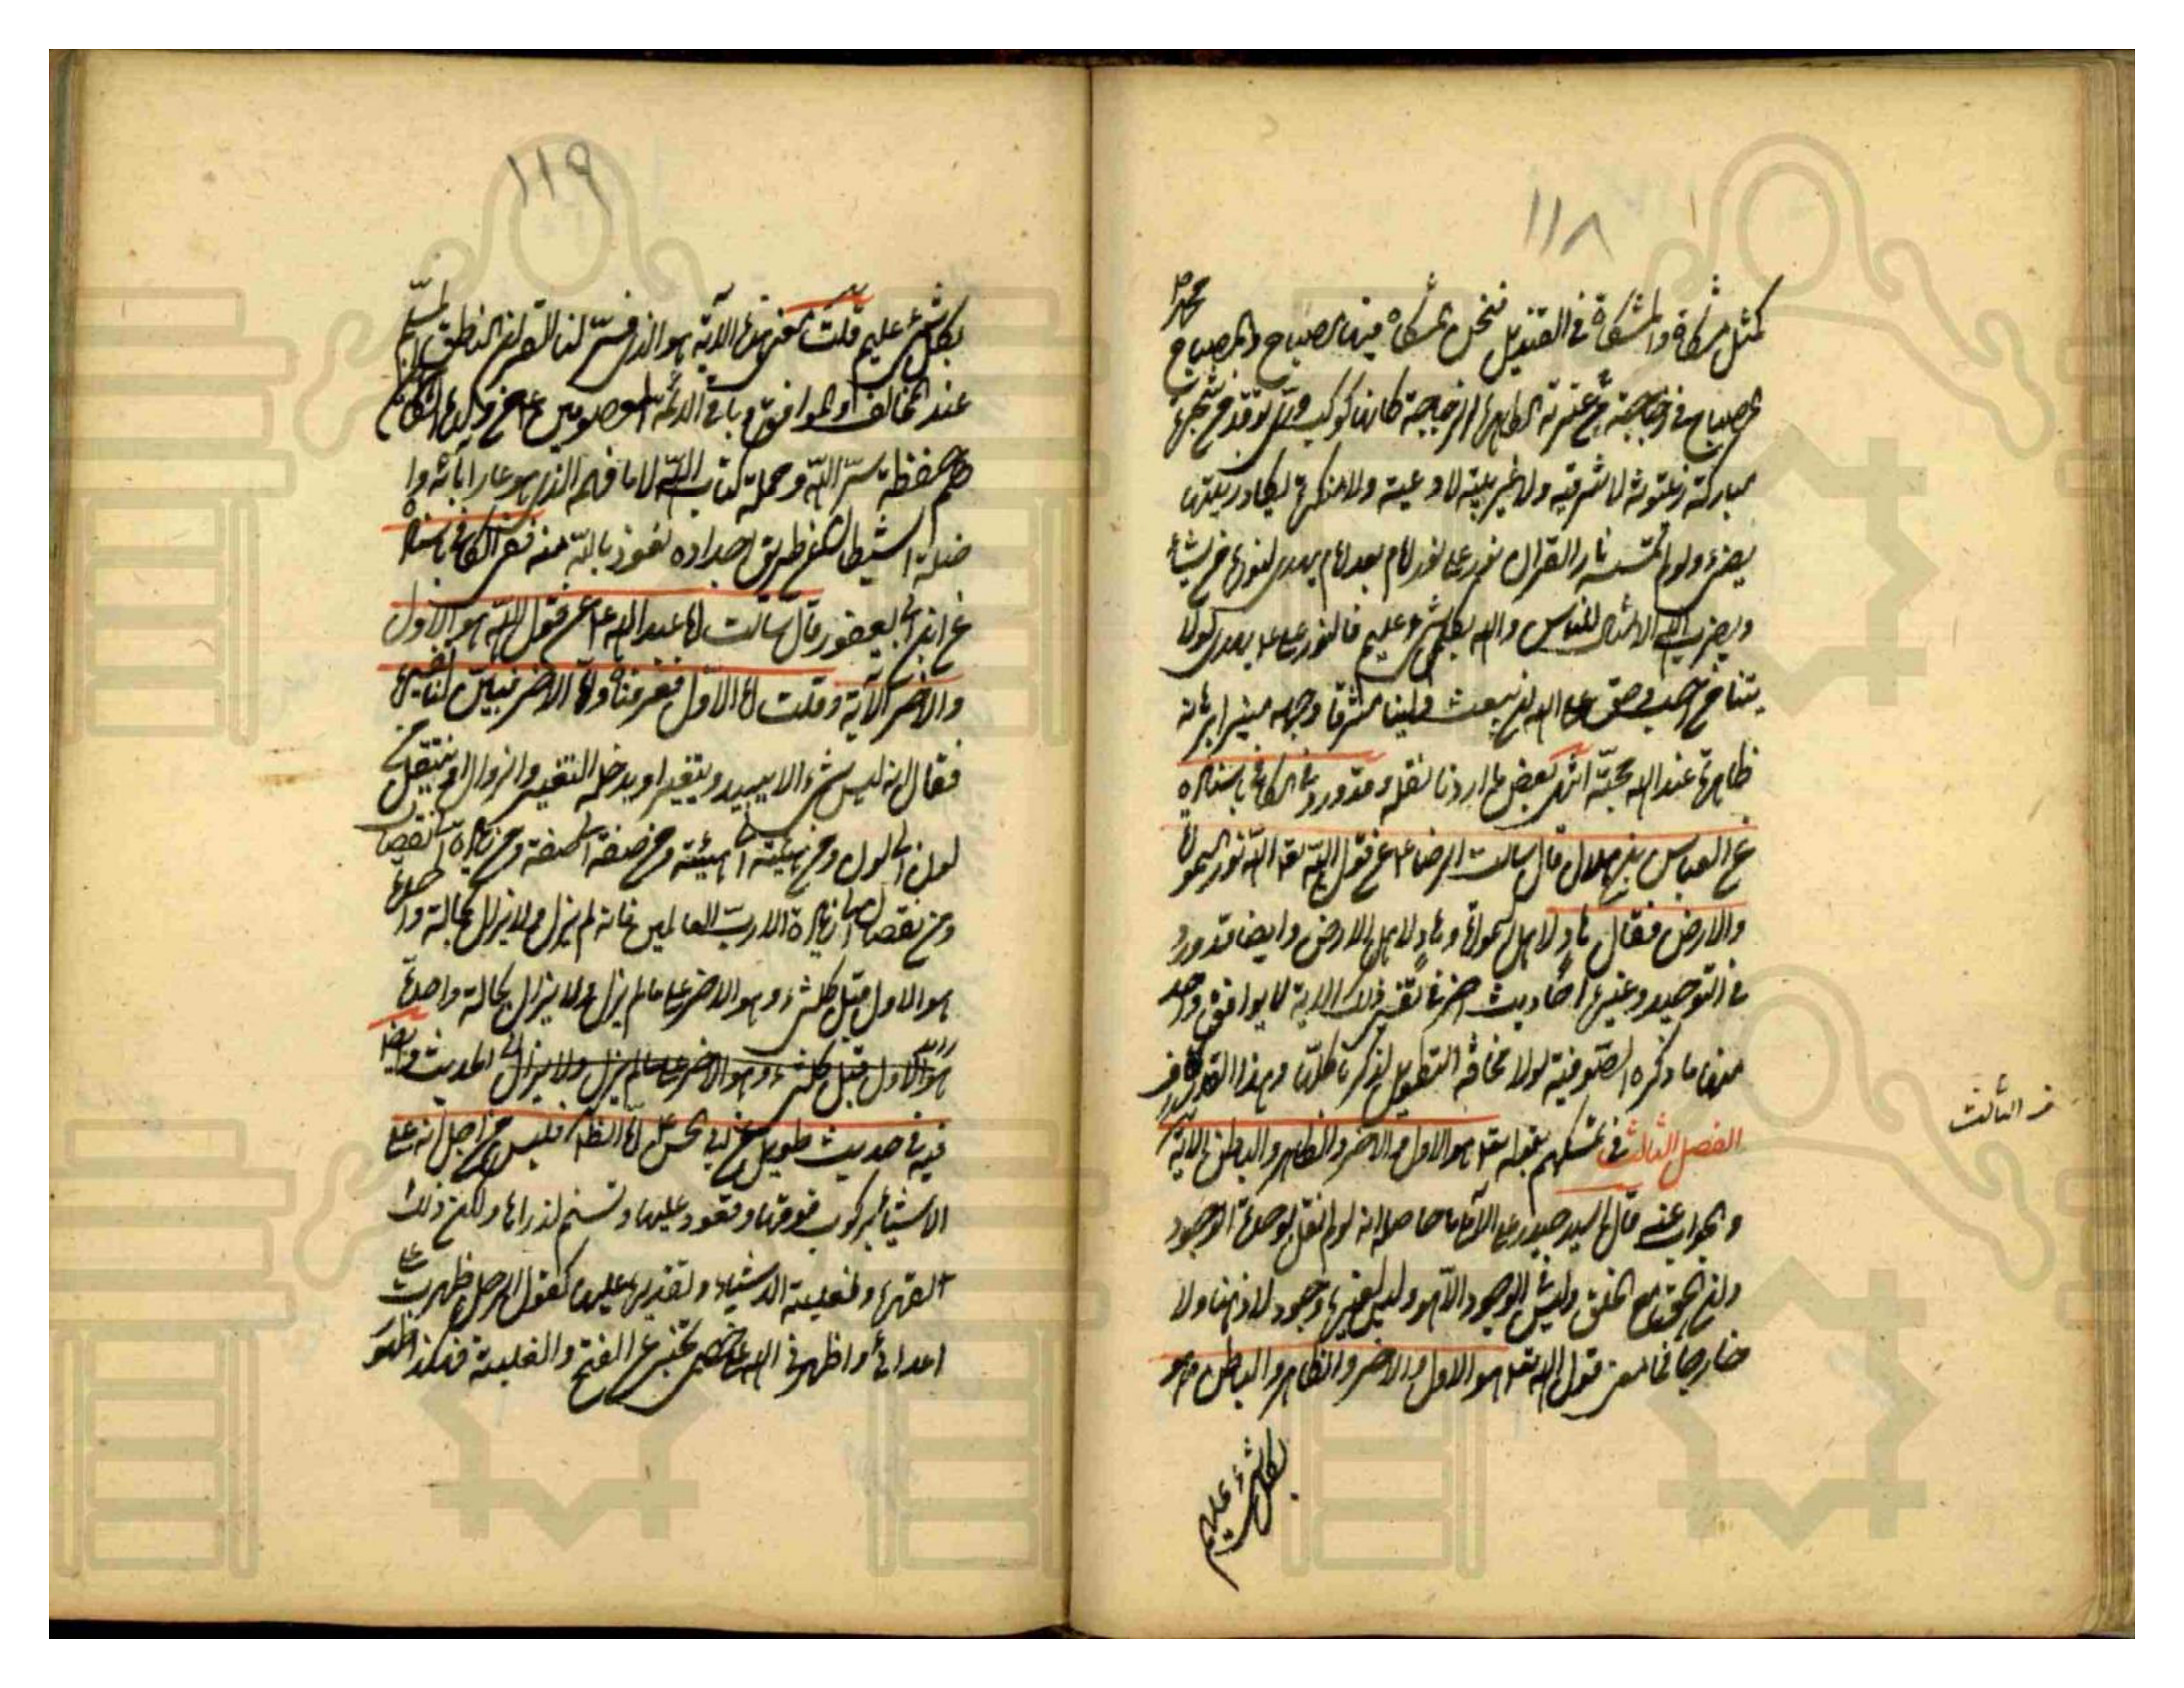 ١١٨
كمثل مشكاة والمشكاة في القنديل فنحن المشكاة فيها مصباح والمصباح محمد ص
المصباح في زجاجة من عنصرته الطاهرة الزجاجة كانها كوكب دري توقد من شجرة
مباركة زيتونة لا شرقيه ولا غربية لا دعية ولا منكرة يكاد زيتها
يضيء ولو لم تمسسه نار القران نور على نور امام بعد امام يهدي لنوره من يشاء
ويضرب الله الامثال للناس والله بكل شيء عليم فالنور علي ع يهدي لولا
يتنا من احب وحق على الله ان يبعث ولينا مشرقا وجهه منيرا برهانه
ظاهرة عند الله حجته انتهى بعض ما اردنا نقله وقد ورد في الكافي باسناده
عن العباس بن هلال قال سالت الرضا ع عن قول الله تعه الله نور السموات
والارض فقال هاد لاهل السموات وهاد لاهل الارض وايضا قد ورد
في التوحيد وغيره احاديث اخر في تفسير ذلك الاية لا يوافق واحد
منها ما ذكره الصوفية لولا مخافة التطويل لذكرتها كلها وهذا القدر كاف
الفصل الثالث في تمسكهم بقوله تعه هو الاول والاخر والظاهر والباطن الاية
والجواب عنه قال السيد حيدر علي الاملي ما حاصله انه لو لم نقل بوحدة الوجود
وان الحق مع الخلق وليس الوجود الا هو وليس لغيره وجود لا ذهنا ولا
خارجا فما معنى قول الله تعه هو الاول والاخر والظاهر والباطن وهو
بكل شيء عليم
في الثالث
١١٩
بكل شيء عليم قلت معنى هذه الآية هو الذي فسر لنا القران الناطق
عند المخالف والموافق وباقي الائمة المعصومين
هم حفظة سر الله وحملة كتاب الله لا ما فهم الذي هو عار ابائه وا
ضلة الشيطان عن طريق اجداده نعوذ بالله منه ففي الكافي باسناده
عن ابن ابي يعفور قال سالت ابا عبد الله ع عن قول الله هو الاول
والاخر الآية وقلت اما الاول فعرفناه واما الاخر فبين لنا تفسيره
فقال انه ليس شيء الا يبيد او يتغير او يدخله التغير والزوال او ينتقل من
لون الى لون ومن هيئة الى هيئة ومن صفة الى صفة ومن زيادة الى نقصان
ومن نقصان الى زيادة الا رب العالمين فانه لم يزل ولا يزال بحالة واحدة
هو الاول قبل كل شيء وهو الاخر على ما لم يزل ولا يزال بحالة واحدة
هو الاول قبل كل شيء وهو الاخر على ما لم يزل ولا يزال الحديث وايضا
فيه في حديث طويل عن ابي الحسن ع اما الظاهر فليس من اجل انه علا
الاشياء بركوب فوقها وقعود عليها وتسنم لذراها ولكن ذلك
لقهره ولغلبته الاشياء ولقدرته عليها كقول الرجل ظهرت على
اعدائي واظهرني الله على خصمي يخبر عن الفتح والغلبة فهكذا ظهور